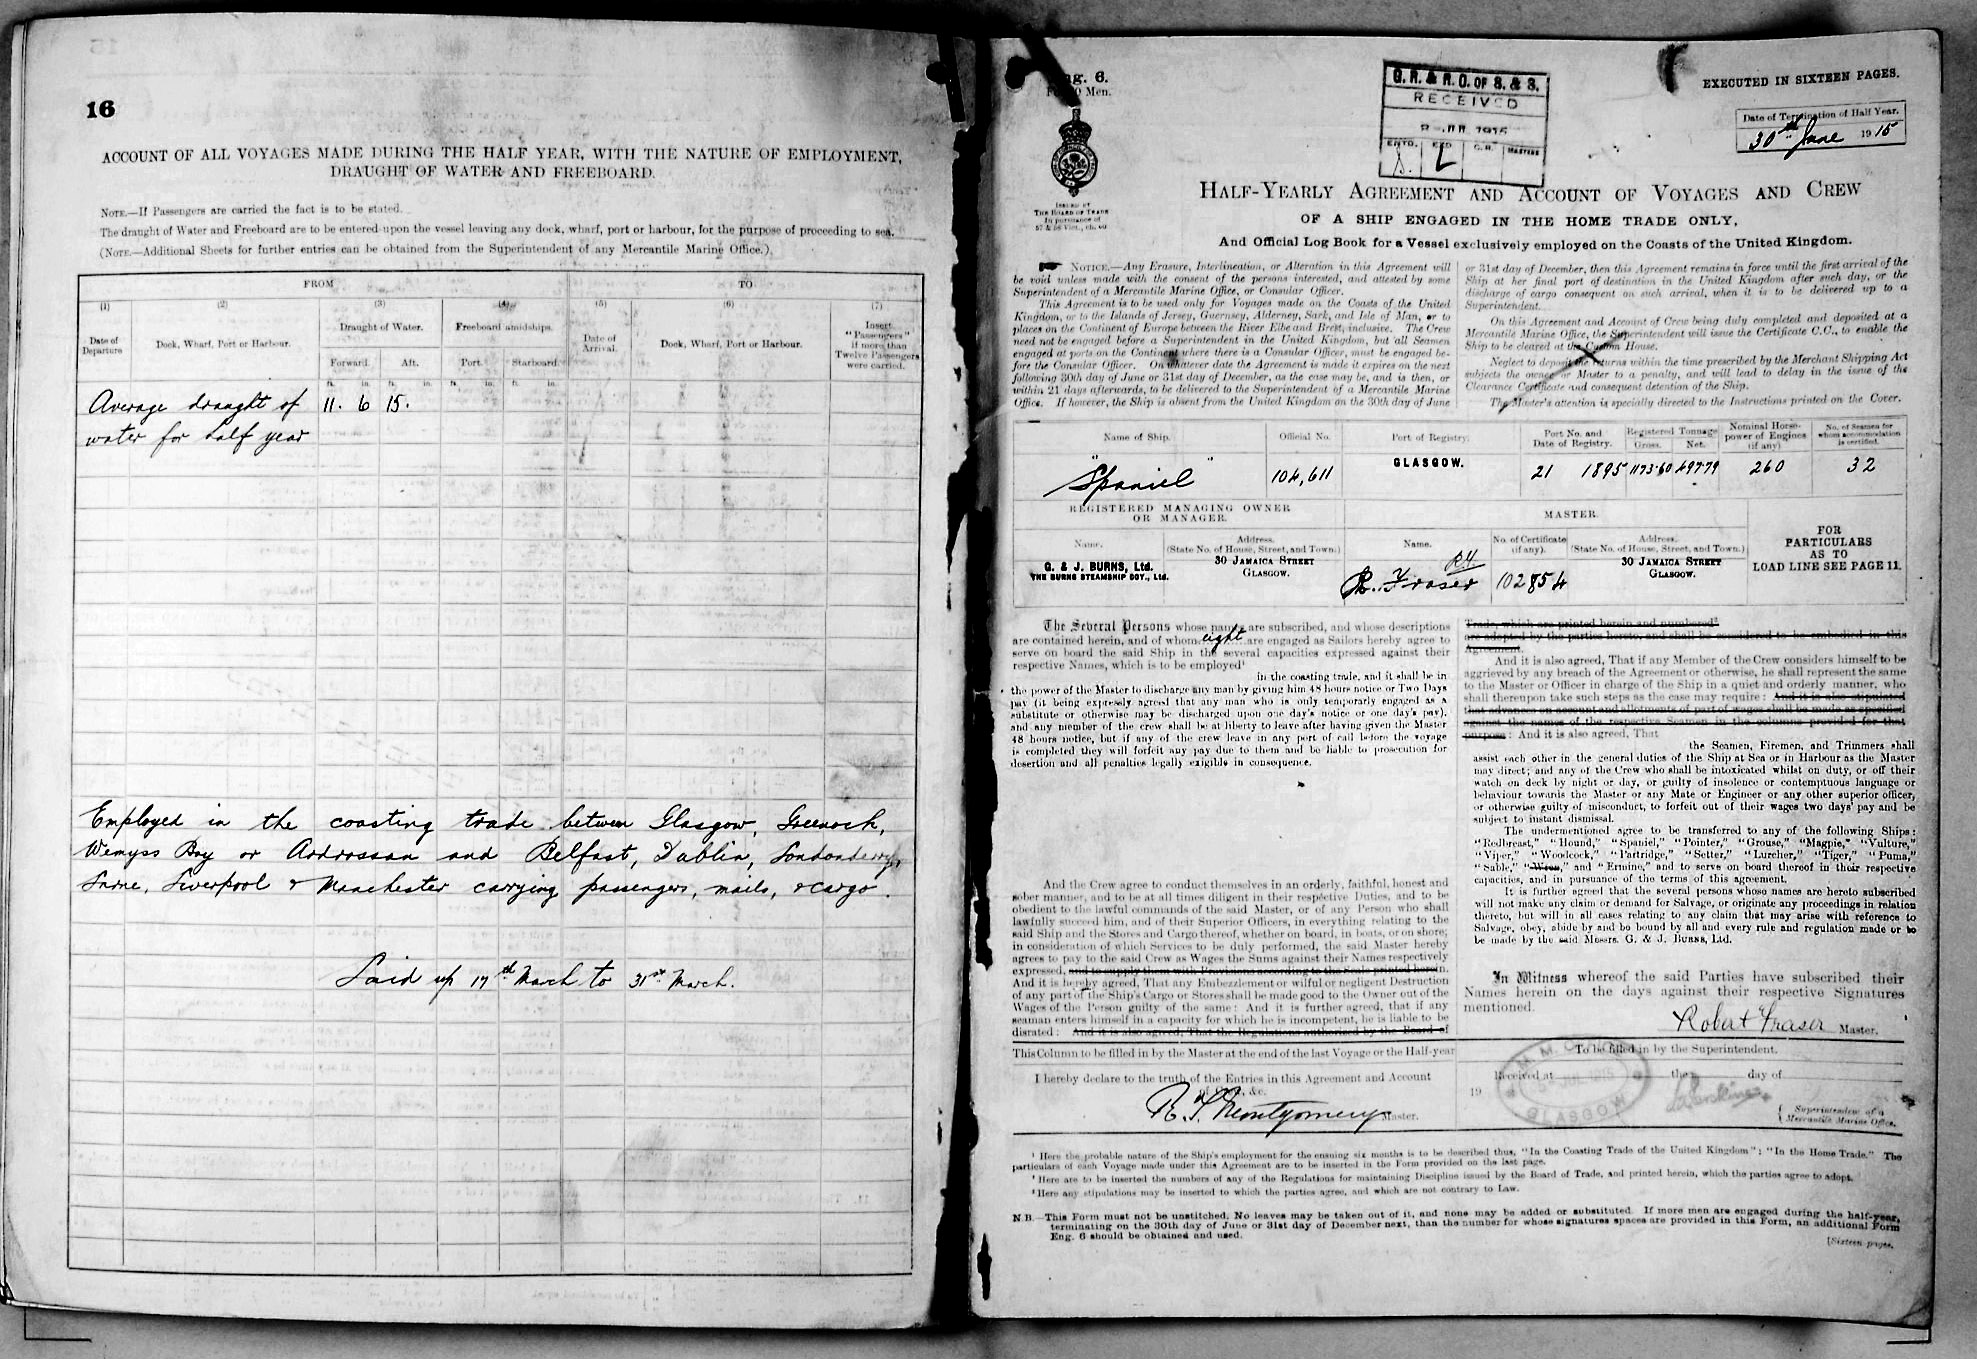 16
ACCOUNT OF ALL VOYAGES MADE DURING THE HALF YEAR, WITH THE NATURE OF EMPLOYMENT,
DRAUGHT OF WATER AND FREEBOARD.
NOTE.—If Passengers are carried the fact is to be stated.
The draught of Water and Freeboard are to be entered upon the vessel leaving any dock, wharf, port or harbour, for the purpose of proceeding to sea.
(NOTE.—Additional Sheets for further entries can be obtained from the Superintendent of any Mercantile Marine Office.)
FROM TO
(1) (2) (3) (4) (5) (6) (7)
Date of Departure Dock, Wharf, Port or Harbour. Draught of Water. Freeboard amidships. Date of Arrival. Dock, Wharf, Port or Harbour. Insert "Passengers" if more than Twelve Passengers were carried.
Forward. Aft. Port. Starboard.
ft. in. ft. in. ft. in. ft. in.
Average draught of 11. 6 15.
water for half year
Employed in the coasting trade between Glasgow, Greenock,
Wemyss Bay or Ardrossan and Belfast, Dublin, Londonderry,
Larne, Liverpool & Manchester carrying passengers, mails, & cargo.
Laid up 17th March to 31st March.
Eng. 6.
Men.
ISSUED BY
THE BOARD OF TRADE
In pursuance of
57 & 58 Vict., ch. 60
G. R. & R. O. OF S. & S.
RECEIVED
1915
ENTD. C.R. MASTERS
EXECUTED IN SIXTEEN PAGES.
Date of Termination of Half Year.
30th June 1915
HALF-YEARLY AGREEMENT AND ACCOUNT OF VOYAGES AND CREW
OF A SHIP ENGAGED IN THE HOME TRADE ONLY,
And Official Log Book for a Vessel exclusively employed on the Coasts of the United Kingdom.
NOTICE.—Any Erasure, Interlineation, or Alteration in this Agreement will
be void unless made with the consent of the persons interested, and attested by some
Superintendent of a Mercantile Marine Office, or Consular Officer.
This Agreement is to be used only for Voyages made on the Coasts of the United
Kingdom, or to the Islands of Jersey, Guernsey, Alderney, Sark, and Isle of Man, or to
places on the Continent of Europe between the River Elbe and Brest, inclusive. The Crew
need not be engaged before a Superintendent in the United Kingdom, but all Seamen
engaged at ports on the Continent where there is a Consular Officer, must be engaged be-
fore the Consular Officer. On whatever date the Agreement is made it expires on the next
following 30th day of June or 31st day of December, as the case may be, and is then, or
within 21 days afterwards, to be delivered to the Superintendent of a Mercantile Marine
Office. If however, the Ship is absent from the United Kingdom on the 30th day of June
or 31st day of December, then this Agreement remains in force until the first arrival of the
Ship at her final port of destination in the United Kingdom after such day, or the
discharge of cargo consequent on such arrival, when it is to be delivered up to a
Superintendent.
On this Agreement and Account of Crew being duly completed and deposited at a
Mercantile Marine Office, the Superintendent will issue the Certificate C.C., to enable the
Ship to be cleared at the Custom House.
Neglect to deposit the returns within the time prescribed by the Merchant Shipping Act
subjects the owner or Master to a penalty, and will lead to delay in the issue of the
Clearance Certificate and consequent detention of the Ship.
The Master's attention is specially directed to the Instructions printed on the Cover.
Name of Ship. Official No. Port of Registry. Port No. and Date of Registry. Registered Tonnage Gross. Net. Nominal Horse-power of Engines (if any) No. of Seamen for whom accommodation is certified.
"Spaniel" 104,611 GLASGOW. 21 1895 1173.60 497.79 260 32
REGISTERED MANAGING OWNER OR MANAGER. MASTER.
Name. Address. (State No. of House, Street, and Town.) Name. No. of Certificate (if any). Address. (State No. of House, Street, and Town.)
FOR PARTICULARS AS TO LOAD LINE SEE PAGE 11.
G. & J. BURNS, Ltd. 30 JAMAICA STREET R. Fraser 102854 30 JAMAICA STREET
THE BURNS STEAMSHIP COY., Ltd. GLASGOW. GLASGOW.
The Several Persons whose names are subscribed, and whose descriptions
are contained herein, and of whom eight are engaged as Sailors hereby agree to
serve on board the said Ship in the several capacities expressed against their
respective Names, which is to be employed¹
in the coasting trade, and it shall be in
the power of the Master to discharge any man by giving him 48 hours notice or Two Days
pay (it being expressly agreed that any man who is only temporarily engaged as a
substitute or otherwise may be discharged upon one day's notice or one day's pay),
and any member of the crew shall be at liberty to leave after having given the Master
48 hours notice, but if any of the crew leave in any port of call before the voyage
is completed they will forfeit any pay due to them and be liable to prosecution for
desertion and all penalties legally exigible in consequence.
And the Crew agree to conduct themselves in an orderly, faithful, honest and
sober manner, and to be at all times diligent in their respective Duties, and to be
obedient to the lawful commands of the said Master, or of any Person who shall
lawfully succeed him, and of their Superior Officers, in everything relating to the
said Ship and the Stores and Cargo thereof, whether on board, in boats, or on shore;
in consideration of which Services to be duly performed, the said Master hereby
agrees to pay to the said Crew as Wages the Sums against their Names respectively
expressed, and to supply them with Provisions according to the Scale printed herein.
And it is hereby agreed, That any Embezzlement or wilful or negligent Destruction
of any part of the Ship's Cargo or Stores shall be made good to the Owner out of the
Wages of the Person guilty of the same: And it is further agreed, that if any
seaman enters himself in a capacity for which he is incompetent, he is liable to be
disrated: And it is also agreed, That the Regulations authorised by the Board of
Trade, which are printed herein and numbered²
are adopted by the parties hereto, and shall be considered to be embodied in this
Agreement.
And it is also agreed, That if any Member of the Crew considers himself to be
aggrieved by any breach of the Agreement or otherwise, he shall represent the same
to the Master or Officer in charge of the Ship in a quiet and orderly manner, who
shall thereupon take such steps as the case may require: And it is also stipulated
that advances on account and allotments of part of wages shall be made as specified
against the names of the respective Seamen in the columns provided for that
purpose: And it is also agreed, That
the Seamen, Firemen, and Trimmers shall
assist each other in the general duties of the Ship at Sea or in Harbour as the Master
may direct; and any of the Crew who shall be intoxicated whilst on duty, or off their
watch on deck by night or day, or guilty of insolence or contemptuous language or
behaviour towards the Master or any Mate or Engineer or any other superior officer,
or otherwise guilty of misconduct, to forfeit out of their wages two days' pay and be
subject to instant dismissal.
The undermentioned agree to be transferred to any of the following Ships:
"Redbreast," "Hound," "Spaniel," "Pointer," "Grouse," "Magpie," "Vulture,"
"Viper," "Woodcock," "Partridge," "Setter," "Lurcher," "Tiger," "Puma,"
"Sable," and "Ermine," and to serve on board thereof in their respective
capacities, and in pursuance of the terms of this agreement.
It is further agreed that the several persons whose names are hereto subscribed
will not make any claim or demand for Salvage, or originate any proceedings in relation
thereto, but will in all cases relating to any claim that may arise with reference to
Salvage, obey, abide by and be bound by all and every rule and regulation made or to
be made by the said Messrs. G. & J. BURNS, Ltd.
In Witness whereof the said Parties have subscribed their
Names herein on the days against their respective Signatures
mentioned.
Robert Fraser Master.
This Column to be filled in by the Master at the end of the last Voyage or the Half-year
I hereby declare to the truth of the Entries in this Agreement and Account
of Crew, &c.
R. Montgomery Master.
To be filled in by the Superintendent.
Received at the day of
19
GLASGOW
Superintendent of a
Mercantile Marine Office.
¹ Here the probable nature of the Ship's employment for the ensuing six months is to be described thus, "In the Coasting Trade of the United Kingdom"; "In the Home Trade." The
particulars of each Voyage made under this Agreement are to be inserted in the Form provided on the last page.
² Here are to be inserted the numbers of any of the Regulations for maintaining Discipline issued by the Board of Trade, and printed herein, which the parties agree to adopt.
³ Here any stipulations may be inserted to which the parties agree, and which are not contrary to Law.
N.B.—This Form must not be unstitched. No leaves may be taken out of it, and none may be added or substituted. If more men are engaged during the half-year,
terminating on the 30th day of June or 31st day of December next, than the number for whose signatures spaces are provided in this Form, an additional Form
Eng. 6 should be obtained and used.
[Sixteen pages.